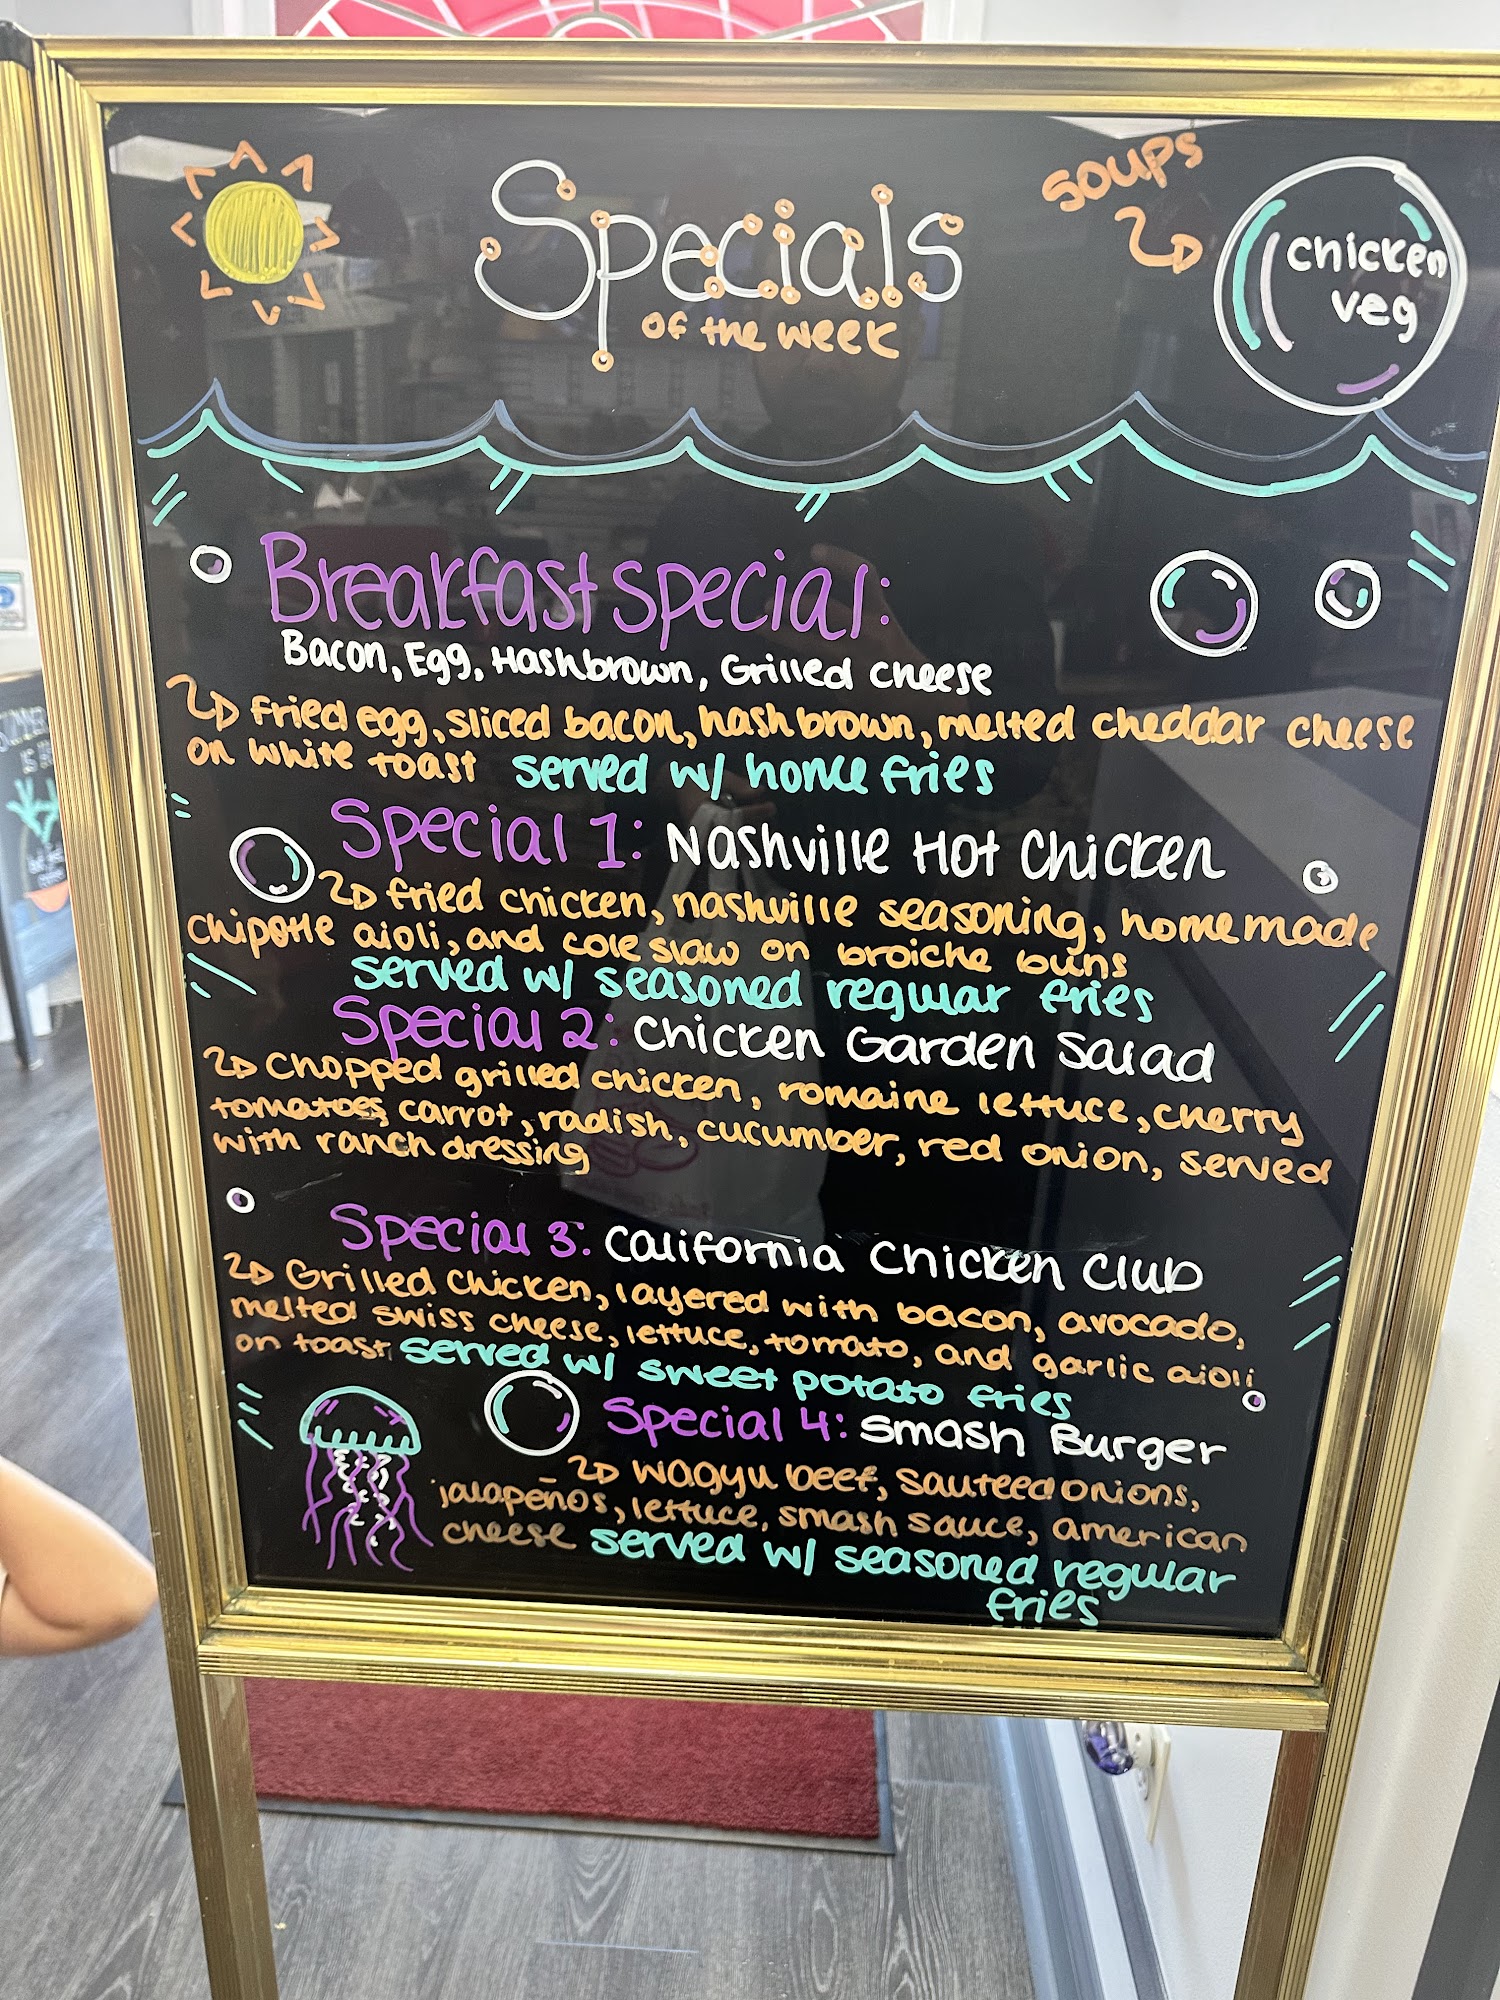 Specials
of the week
soups
chicken
veg
Breakfast special:
Bacon, Egg, Hashbrown, Grilled cheese
fried egg, sliced bacon, hash brown, melted cheddar cheese
on white toast served w/ home fries
Special 1: Nashville Hot Chicken
fried chicken, nashville seasoning, homemade
chipotle aioli, and cole slaw on broiche buns
served w/ seasoned regular fries
Special 2: Chicken Garden Salad
Chopped grilled chicken, romaine lettuce, cherry
tomatoes, carrot, radish, cucumber, red onion, served
with ranch dressing
Special 3: California Chicken Club
Grilled chicken, layered with bacon, avocado,
melted swiss cheese, lettuce, tomato, and garlic aioli
on toast served w/ sweet potato fries
Special 4: Smash Burger
wagyu beef, sauteed onions,
jalapeños, lettuce, smash sauce, american
cheese served w/ seasoned regular
fries